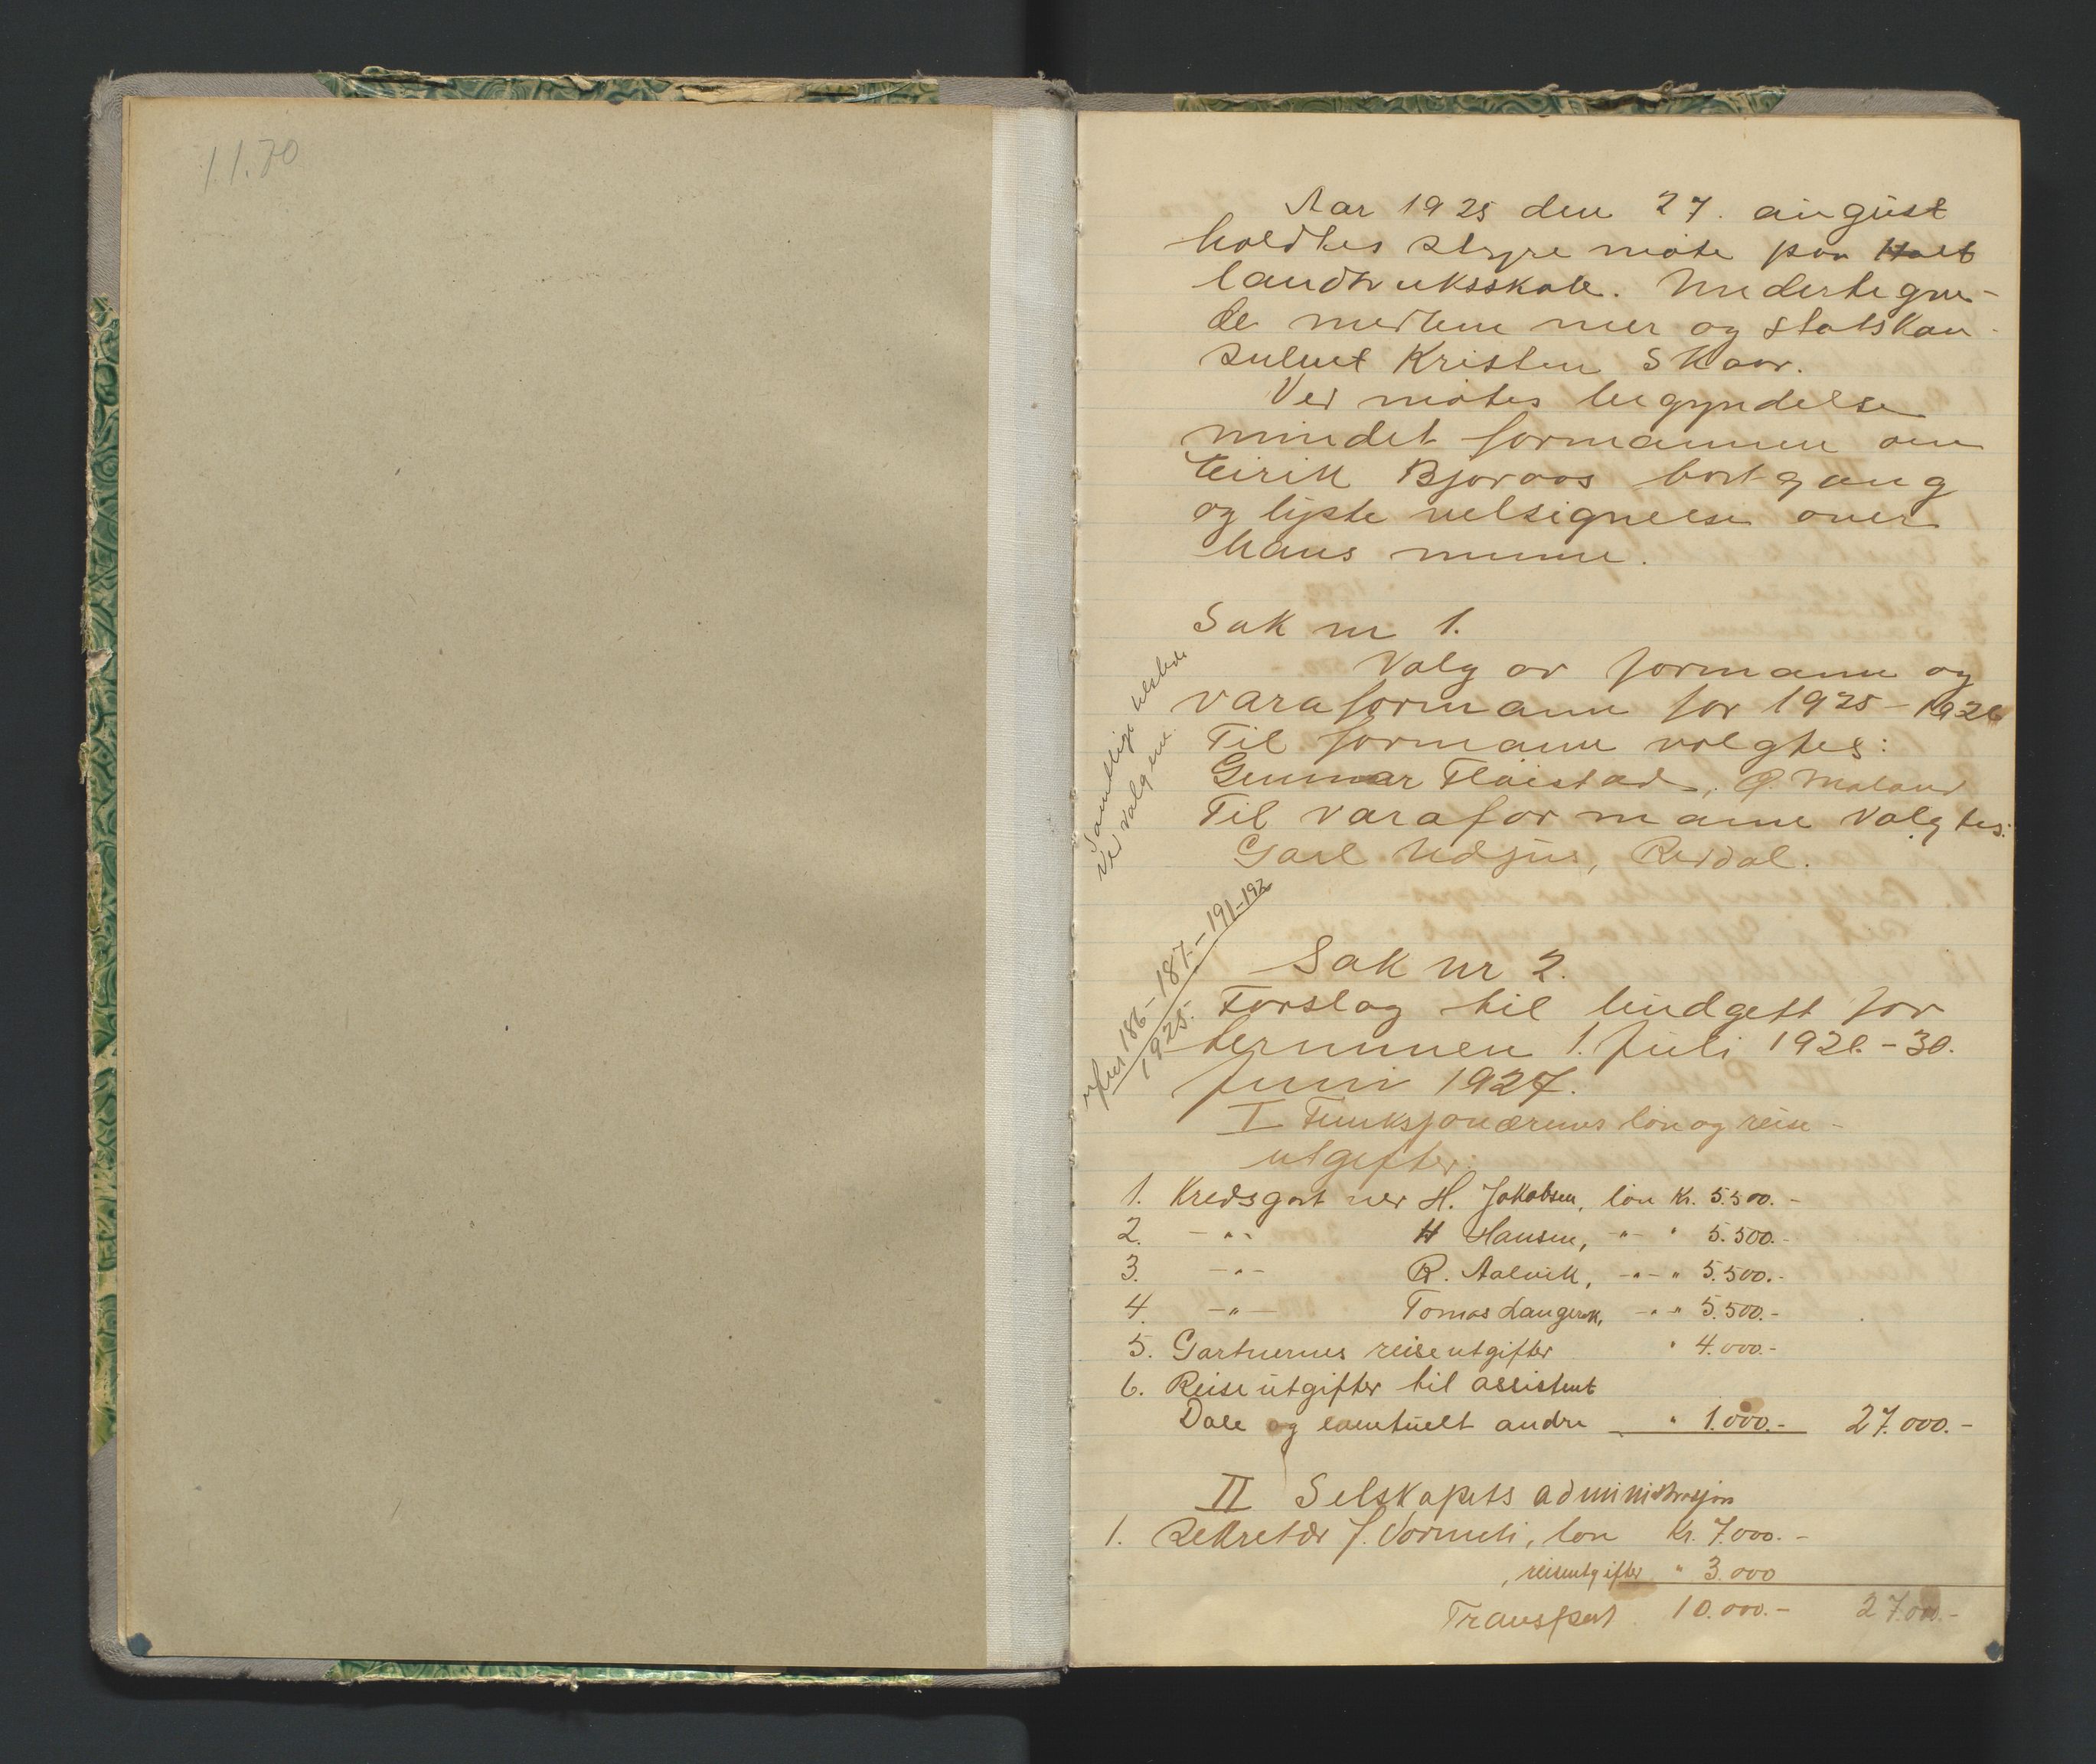 11.70
Aar 1925 den 27. august
holdtes styremøte paa Holt
landbruksskole. Undertegne-
de medlemmer og statskon-
sulent Kristen Skaar.
Ved møtes begyndelse
mindet formannen om
Eirik Bjoraas bortgang
og lyste velsignelse over
hans minne.
Sak nr 1.
Valg av formann og
varaformann for 1925-1926
Til formann valgtes:
Gunnar Fløistad, Ø. Moland
Til varaformann valgtes:
Carl Udjus, Reddal.
Samtlige tilstede
ved valgene.
Sak nr 2.
Forslag til budgett for
terminen 1. juli 1926-30.
juni 1927.
186-187-191-192
1925.
I Funksjonærenes løn og reise-
utgifter:
1. Kredsgartner H. Jakobsen, løn Kr. 5.500.-
2. -"- H Hansen, -"- " 5.500.-
3. -"- R. Aalvik, -"- " 5.500.-
4. -"- Tomas Langerak, -"- " 5.500.-
5. Gartnernes reiseutgifter " 4.000.-
6. Reiseutgifter til assistent
Dale og eventuelt andre " 1.000.- 27.000.-
II Selskapets administrasjon
1. Sekretær J. Vormeli, løn Kr. 7.000.-
, reiseutgifter " 3.000
Transport 10.000.- 27.000.-